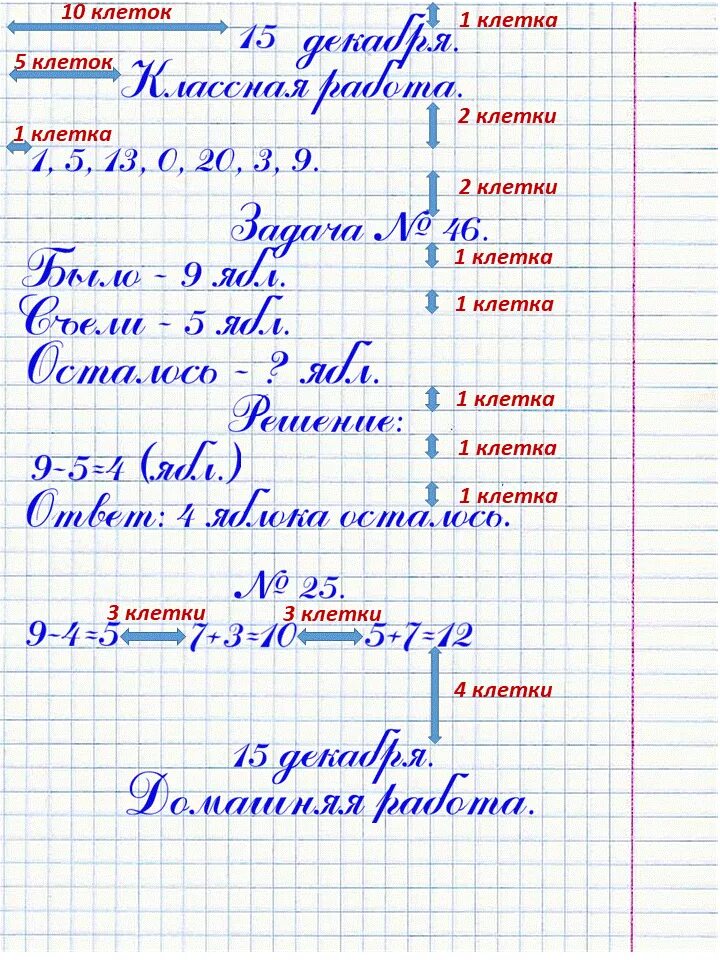 10 клеток
1 клетка
15 декабря.
5 клеток
Классная работа.
2 клетки
1 клетка
1, 5, 13, 0, 20, 3, 9.
2 клетки
Задача № 46.
1 клетка
Было - 9 ябл.
1 клетка
Съели - 5 ябл.
Осталось - ? ябл.
1 клетка
Решение:
1 клетка
9-5=4 (ябл.)
1 клетка
Ответ: 4 яблока осталось.
№ 25.
3 клетки 3 клетки
9-4=5 7+3=10 5+7=12
4 клетки
15 декабря.
Домашняя работа.